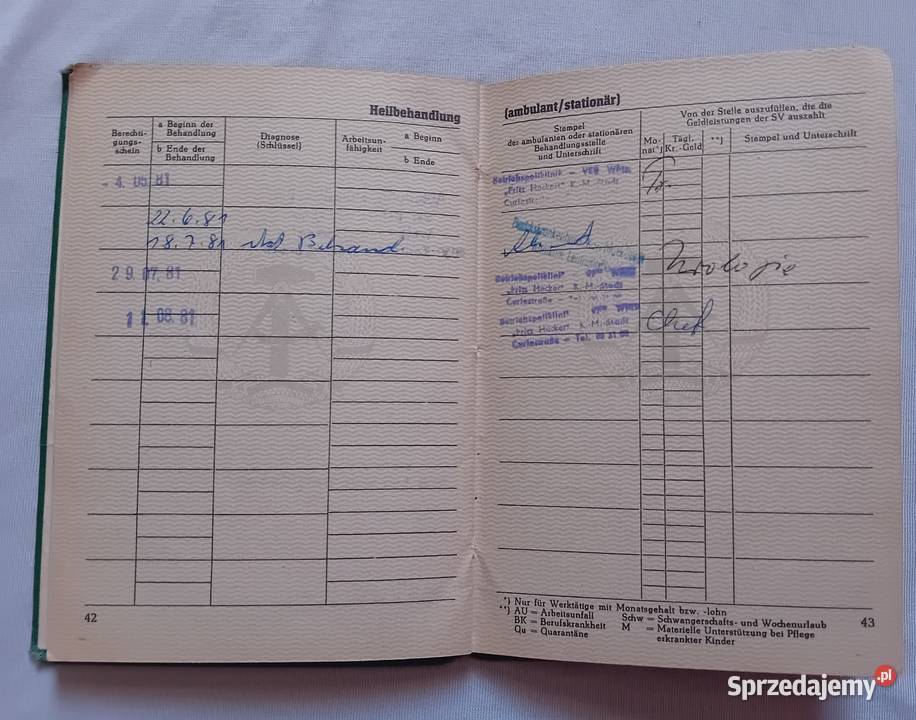 Heilbehandlung
Berechti-
gungs-
schein
a Beginn der
Behandlung
b Ende der
Behandlung
Diagnose
(Schlüssel)
Arbeitsun-
fähigkeit
a Beginn
b Ende
- 4. 05. 81
22. 6. 81
18. 7. 81
29. 07. 81
11. 08. 81
42
(ambulant/stationär)
Stempel
der ambulanten oder stationären
Behandlungsstelle
und Unterschrift
Von der Stelle auszufüllen, die die
Geldleistungen der SV auszahlt
Mo-
nat*)
Tägl.
Kr.-Geld
**)
Stempel und Unterschrift
Betriebspoliklinik - VEB
"Fritz Heckert" K.-M.-Stadt
Curiestraße
Urologie
Betriebspoliklinik
"Fritz Heckert" K.-M.-Stadt
Curiestraße - Tel.
Betriebspoliklinik
"Fritz Heckert" K.-M.-Stadt
Curiestraße - Tel.
*) Nur für Werktätige mit Monatsgehalt bzw. -lohn
**) AU = Arbeitsunfall
BK = Berufskrankheit
Qu = Quarantäne
Schw = Schwangerschafts- und Wochenurlaub
M = Materielle Unterstützung bei Pflege
erkrankter Kinder
43
Sprzedajemy.pl